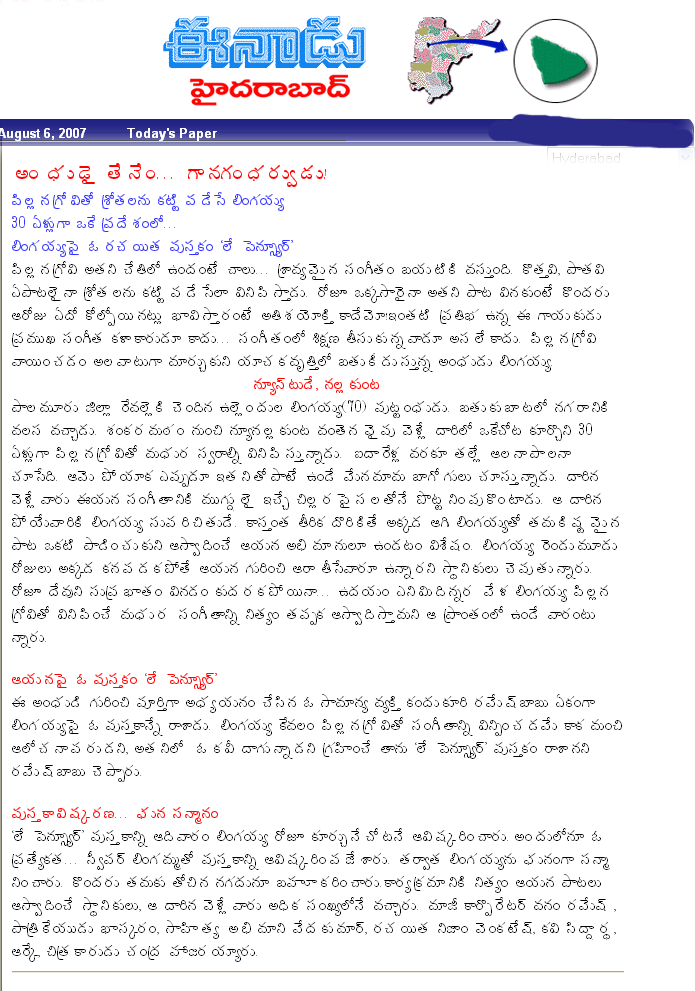 ఈనాడు
హైదరాబాద్
August 6, 2007 Today's Paper
Hyderabad
అంధుడై తేనేం... గానగంధర్వుడు!
పిల్లనగ్రోవితో శ్రోతలను కట్టిపడేసే లింగయ్య
30 ఏళ్లుగా ఒకే ప్రదేశంలో...
లింగయ్యపై ఓ రచయిత పుస్తకం 'లే పెన్స్యూర్'
పిల్లనగ్రోవి అతని చేతిలో ఉందంటే చాలు... శ్రావ్యమైన సంగీతం బయటికి వస్తుంది. కొత్తవి, పాతవి
ఏపాటలైనా శ్రోతలను కట్టిపడేసేలా వినిపిస్తాడు. రోజూ ఒక్కసారైనా అతని పాట వినకుంటే కొందరు
ఆరోజు ఏదో కోల్పోయినట్లు భావిస్తారంటే అతిశయోక్తి కాదేమో!ఇంతటి ప్రతిభ ఉన్న ఈ గాయకుడు
ప్రముఖ సంగీత కళాకారుడూ కాదు... సంగీతంలో శిక్షణ తీసుకున్నవాడూ అసలే కాదు. పిల్లనగ్రోవి
వాయించడం అలవాటుగా మార్చుకుని యాచకవృత్తిలో బతుకీడుస్తున్న అంధుడు లింగయ్య.
న్యూస్‌టుడే, నల్లకుంట
పాలమూరు జిల్లా రేవల్లెకి చెందిన ఉల్లెందుల లింగయ్య(70) పుట్టంధుడు. బతుకుబాటలో నగరానికి
వలస వచ్చాడు. శంకరమఠం నుంచి న్యూనల్లకుంట వంతెన వైపు వెళ్లే దారిలో ఒకేచోట కూర్చొని 30
ఏళ్లుగా పిల్లనగ్రోవితో మధుర స్వరాల్ని వినిపిస్తున్నాడు. ఐదారేళ్ల వరకూ తల్లే ఆలనాపాలనా
చూసేది. ఆమె పోయాక ఎప్పుడూ ఇతనితోపాటే ఉండే మేనమామ బాగోగులు చూస్తున్నాడు. దారిన
వెళ్లేవారు ఈయన సంగీతానికి ముగ్ధులై ఇచ్చే చిల్లర పైసలతోనే పొట్ట నింపుకొంటాడు. ఆ దారిన
పోయేవారికి లింగయ్య సుపరిచితుడే. కాస్తంత తీరిక దొరికితే అక్కడ ఆగి లింగయ్యతో తమకిష్టమైన
పాట ఒకటి పాడించుకుని ఆస్వాదించే ఆయన అభిమానులూ ఉండటం విశేషం. లింగయ్య రెండుమూడు
రోజులు అక్కడ కనపడకపోతే ఆయన గురించి ఆరా తీసేవారూ ఉన్నారని స్థానికులు చెపుతున్నారు.
రోజూ దేవుని సుప్రభాతం వినడం కుదరకపోయినా... ఉదయం ఎనిమిదిన్నర వేళ లింగయ్య పిల్లన
గ్రోవితో వినిపించే మధుర సంగీతాన్ని నిత్యం తప్పక ఆస్వాదిస్తామని ఆ ప్రాంతంలో ఉండే వారంటు
న్నారు.
ఆయనపై ఓ పుస్తకం 'లే పెన్స్యూర్'
ఈ అంధుడి గురించి పూర్తిగా అధ్యయనం చేసిన ఓ సామాన్య వ్యక్తి కందుకూరి రమేష్‌బాబు ఏకంగా
లింగయ్యపై ఓ పుస్తకాన్నే రాశాడు. లింగయ్య కేవలం పిల్లనగ్రోవితో సంగీతాన్ని విన్పించడమే కాక మంచి
ఆలోచనాపరుడని, అతనిలో ఓ కవీ దాగున్నాడని గ్రహించే తాను 'లే పెన్స్యూర్' పుస్తకం రాశానని
రమేష్‌బాబు చెప్పారు.
పుస్తకావిష్కరణ... ఘన సన్మానం
'లే పెన్స్యూర్' పుస్తకాన్ని ఆదివారం లింగయ్య రోజూ కూర్చునేచోటనే ఆవిష్కరించారు. అందులోనూ ఓ
ప్రత్యేకత... స్వీపర్ లింగమ్మతో పుస్తకాన్ని ఆవిష్కరింపజేశారు. తర్వాత లింగయ్యను ఘనంగా సన్మా
నించారు. కొందరు తమకు తోచిన నగదునూ బహూకరించారు.కార్యక్రమానికి నిత్యం ఆయన పాటలు
ఆస్వాదించే స్థానికులు, ఆ దారిన వెళ్లేవారు అధిక సంఖ్యలోనే వచ్చారు. మాజీ కార్పొరేటర్ వనం రమేష్,
పాత్రికేయుడు భాస్కరం, సాహిత్య అభిమాని వేదకుమార్, రచయిత నిజాం వెంకటేష్, కవి సిద్దార్థ,
ఆర్కే, చిత్రకారుడు చంద్ర హాజరయ్యారు.